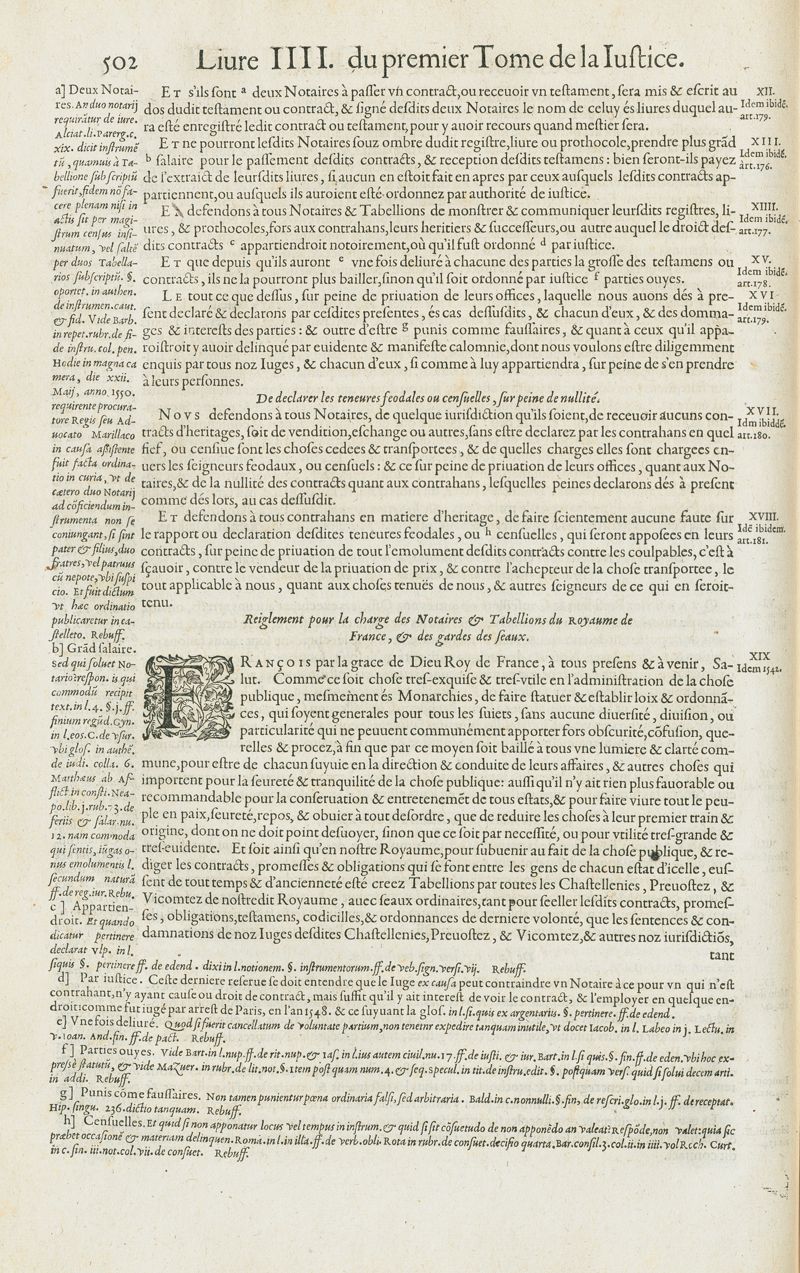 502 Liure IIII. du premier Tome de la Iuſtice.
a] Deux Notai-
res. An duo notarij
requirātur de iure.
Alciat. li. parerg. c.
xix. dicit inſtrumē
tū, quamuis à Ta-
bellione ſubſcriptū
fuerit, fidem nō fa-
cere plenam niſi in
actis ſit per magi-
ſtrum cenſus inſi-
nuatum, vel ſaltē
per duos Tabella-
rios ſubſcriptū. §.
oportet. in authen.
de inſtrumen. caut.
& fid. Vide Barb.
in repet. rubr. de fi-
de inſtru. col. pen.
Hodie in magna ca
mera, die xxii.
Maij, anno. 1550.
requirente procura-
tore Regis ſeu Ad-
uocato Marillaco
in cauſa aſsiſtente
fuit facta ordina-
tio in curia, vt de
cætero duo Notarij
ad cōficiendum in-
ſtrumenta non ſe
coniungant, ſi ſint
pater & filius, duo
fratres, vel patruus
cū nepote, vbi ſuſpi
cio. Et fuit dictum
vt hæc ordinatio
publicaretur in ca-
ſtelleto. Rebuff.
b] Grād ſalaire.
Sed qui ſoluet No-
tario: reſpon. is qui
commodū recipit
text. in l. 4. §. j. ff.
finium regūd. Cyn.
in l. eos. C. de vſur.
vbi gloſ. in authē.
de iudi. colla. 6.
Matthæus ab Af-
flict. in conſti. Nea-
po. lib. j. rub. 73. de
feriis & ſalar. nu.
12. nam commoda
qui ſentis, iūgas o-
nus emolumentis l.
ſecundum naturā
ff. de reg. iur. Rebu.
c] Appartien-
droit. Et quando
dicatur pertinere
declarat vlp. in l.
ET s'ils ſont a deux Notaires à paſſer vn contract, ou receuoir vn teſtament, ſera mis & eſcrit au
dos dudit teſtament ou contract, & ſigné deſdits deux Notaires le nom de celuy és liures duquel au-
ra eſté enregiſtré ledit contract ou teſtament, pour y auoir recours quand meſtier ſera.
XII.
Idem ibidē.
art. 179.
ET ne pourront leſdits Notaires ſouz ombre dudit regiſtre, liure ou prothocole, prendre plus grād
b ſalaire pour le paſſement deſdits contracts, & reception deſdits teſtamens : bien ſeront-ils payez
de l'extraict de leurſdits liures, ſi aucun en eſtoit fait en apres par ceux auſquels leſdits contracts ap-
partiennent, ou auſquels ils auroient eſté ordonnez par authorité de iuſtice.
XIII.
Idem ibidē.
art. 176.
ET defendons à tous Notaires & Tabellions de monſtrer & communiquer leurſdits regiſtres, li-
ures, & prothocoles, fors aux contrahans, leurs heritiers & ſucceſſeurs, ou autre auquel le droict deſ-
dits contracts c appartiendroit notoirement, où qu'il fuſt ordonné d par iuſtice.
XIIII.
Idem ibidē.
art. 177.
ET que depuis qu'ils auront e vne fois deliuré à chacune des parties la groſſe des teſtamens ou
contracts, ils ne la pourront plus bailler, ſinon qu'il ſoit ordonné par iuſtice f parties ouyes.
XV.
Idem ibidē.
art. 178.
LE tout ce que deſſus, ſur peine de priuation de leurs offices, laquelle nous auons dés à pre-
ſent declaré & declarons par ceſdites preſentes, és cas deſſuſdits, & chacun d'eux, & des domma-
ges & intereſts des parties : & outre d'eſtre g punis comme fauſſaires, & quant à ceux qu'il appa-
roiſtroit y auoir delinqué par euidente & manifeſte calomnie, dont nous voulons eſtre diligemment
enquis par tous noz Iuges, & chacun d'eux, ſi comme à luy appartiendra, ſur peine de s'en prendre
à leurs perſonnes.
XVI
Idem ibidē.
art. 179.
De declarer les teneures feodales ou cenſuelles, ſur peine de nullité.
NOVS defendons à tous Notaires, de quelque iuriſdiction qu'ils ſoient, de receuoir aucuns con-
tracts d'heritages, ſoit de vendition, eſchange ou autres, ſans eſtre declarez par les contrahans en quel
fief, ou cenſiue ſont les choſes cedees & tranſportees, & de quelles charges elles ſont chargees en-
uers les ſeigneurs feodaux, ou cenſuels : & ce ſur peine de priuation de leurs offices, quant aux No-
taires, & de la nullité des contracts quant aux contrahans, leſquelles peines declarons dés à preſent
comme dés lors, au cas deſſuſdit.
XVII.
Idm ibiddē.
art. 180.
ET defendons à tous contrahans en matiere d'heritage, de faire ſcientement aucune faute ſur
le rapport ou declaration deſdites teneures feodales, ou h cenſuelles, qui ſeront appoſées en leurs
contracts, ſur peine de priuation de tout l'emolument deſdits contracts contre les coulpables, c'eſt à
ſçauoir, contre le vendeur de la priuation de prix, & contre l'achepteur de la choſe tranſportee, le
tout applicable à nous, quant aux choſes tenuës de nous, & autres ſeigneurs de ce qui en ſeroit-
tenu.
XVIII.
Idē ibidem.
art. 181.
Reiglement pour la charge des Notaires & Tabellions du Royaume de
France, & des gardes des ſeaux.
FRANÇOIS par la grace de Dieu Roy de France, à tous preſens & à venir, Sa-
lut. Comme ce ſoit choſe treſ-exquiſe & treſ-vtile en l'adminiſtration de la choſe
publique, meſmement és Monarchies, de faire ſtatuer & eſtablir loix & ordonnā-
ces, qui ſoyent generales pour tous les ſuiets, ſans aucune diuerſité, diuiſion, ou
particularité qui ne peuuent communément apporter fors obſcurité, cōfuſion, que-
relles & procez, à fin que par ce moyen ſoit baillé à tous vne lumiere & clarté com-
mune, pour eſtre de chacun ſuyuie en la direction & conduite de leurs affaires, & autres choſes qui
importent pour la ſeureté & tranquilité de la choſe publique: auſſi qu'il n'y ait rien plus fauorable ou
recommandable pour la conſeruation & entretenemēt de tous eſtats, & pour faire viure tout le peu-
ple en paix, ſeureté, repos, & obuier à tout deſordre, que de reduire les choſes à leur premier train &
origine, dont on ne doit point deſuoyer, ſinon que ce ſoit par neceſſité, ou pour vtilité treſ-grande &
treſ-euidente. Et ſoit ainſi qu'en noſtre Royaume, pour ſubuenir au fait de la choſe publique, & re-
diger les contracts, promeſſes & obligations qui ſe font entre les gens de chacun eſtat d'icelle, euſ-
ſent de tout temps & d'ancienneté eſté creez Tabellions par toutes les Chaſtellenies, Preuoſtez, &
Vicomtez de noſtredit Royaume, auec ſeaux ordinaires, tant pour ſéeller leſdits contracts, promeſ-
ſes, obligations, teſtamens, codicilles, & ordonnances de derniere volonté, que les ſentences & con-
damnations de noz Iuges deſdites Chaſtellenies, Preuoſtez, & Vicomtez, & autres noz iuriſdictiōs,
tant
XIX
Idem 1542.
ſiquis §. pertinere ff. de edend. dixi in l. notionem. §. inſtrumentorum. ff. de veb. ſign. verſi. vij. Rebuff.
d] Par iuſtice. Ceſte derniere reſerue ſe doit entendre que le Iuge ex cauſa peut contraindre vn Notaire à ce pour vn qui n'eſt
contrahant, n'y ayant cauſe ou droit de contract, mais ſuffit qu'il y ait intereſt de voir le contract, & l'employer en quelque en-
droit: comme fut iugé par arreſt de Paris, en l'an 1548. & ce ſuyuant la gloſ. in l. ſi. quis ex argentariis. §. pertinere. ff. de edend.
e] Vne fois deliuré. Quod ſi fuerit cancellatum de voluntate partium, non tenetur expedire tanquam inutile, vt docet Iacob. in l. Labeo in j. Lectu. in
v. Ioan. And. fin. ff. de pact. Rebuff.
f] Parties ouyes. Vide Bart. in l. nup. ff. de rit. nup. & Iaſ. in l. ius autem ciuil. nu. 17. ff. de iuſti. & iur. Bart. in l. ſi quis. §. fin. ff. de eden. vbi hoc ex-
preſsè ſtatutū, & vide Mazuer. in rubr. de lit. not. §. Item poſt quam num. 4. & ſeq. Specul. in tit. de inſtru. edit. §. poſtquam verſ. quid ſi ſolui decem arti.
in addi. Rebuff.
g] Punis cōme fauſſaires. Non tamen punientur pœna ordinaria falſi, ſed arbitraria. Bald. in c. nonnulli. §. fin, de reſcri. glo. in l. j. ff. de receptat.
Hip. ſingu. 236. dictio tanquam. Rebuff.
h] Cenſuelles. Et quid ſi non apponatur locus vel tempus in inſtrum. & quid ſi ſit cōſuetudo de non apponēdo an valeat: Reſpōde, non valet: quia ſic
præbet occaſionē & materiam delinquen. Roma. in l. in illa. ff. de verb. obli. Rota in rubr. de conſuet. deciſio quarta. Bar. conſil. 3. col. ii. in iiii. vol Rech. Curt.
in c. fin. iii. not. col. vii. de conſuet. Rebuff.